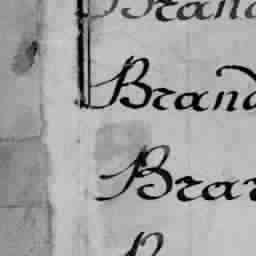 Brand
Brand
Bran
B